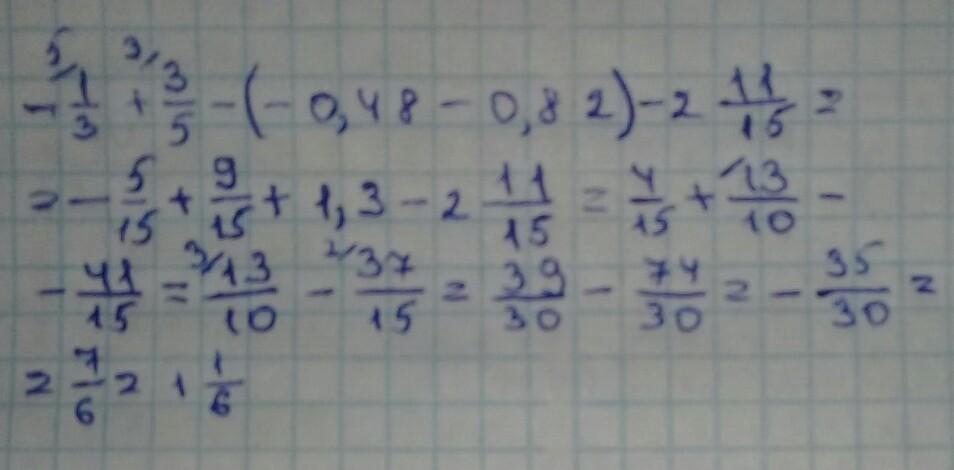 -⁵/1/3 + ³/3/5 - (- 0,48 - 0,82) - 2 11/15 =
= - 5/15 + 9/15 + 1,3 - 2 11/15 = 4/15 + 13/10 -
- 41/15 = ³/13/10 - ²/37/15 = 39/30 - 74/30 = - 35/30 =
= 7/6 = 1 1/6